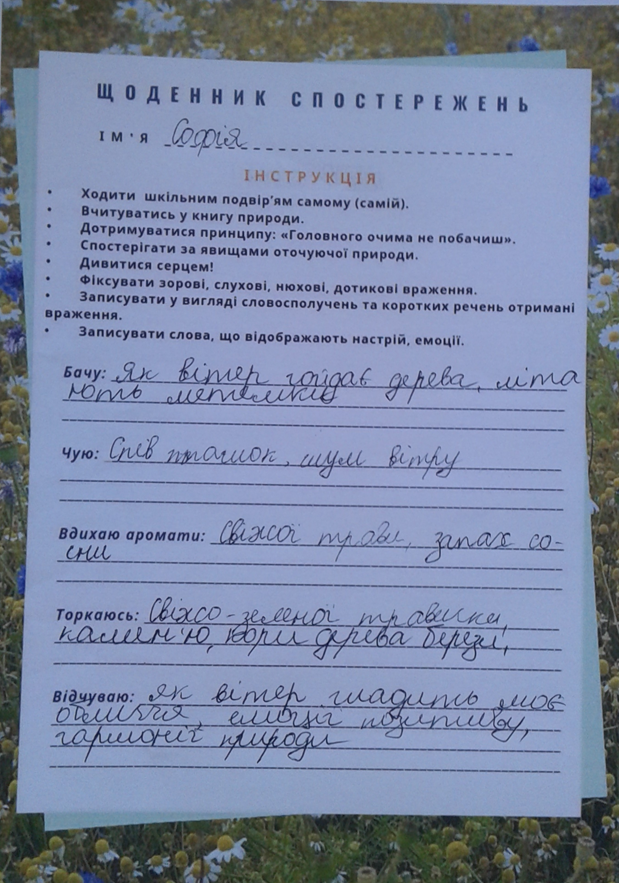 ЩОДЕННИК СПОСТЕРЕЖЕНЬ
ІМ'Я Софія
ІНСТРУКЦІЯ
• Ходити шкільним подвір'ям самому (самій).
• Вчитуватись у книгу природи.
• Дотримуватися принципу: «Головного очима не побачиш».
• Спостерігати за явищами оточуючої природи.
• Дивитися серцем!
• Фіксувати зорові, слухові, нюхові, дотикові враження.
• Записувати у вигляді словосполучень та коротких речень отримані
враження.
• Записувати слова, що відображають настрій, емоції.
Бачу: Як вітер гойдає дерева, літа
ють метелики
Чую: Спів пташок, шум вітру
Вдихаю аромати: Свіжої трави, запах со-
сни
Торкаюсь: Свіжо-зеленої травички,
камен'ю, кори дерева берези,
Відчуваю: як вітер гладить моє
обличчя, емоції позитиву,
гармонії природи